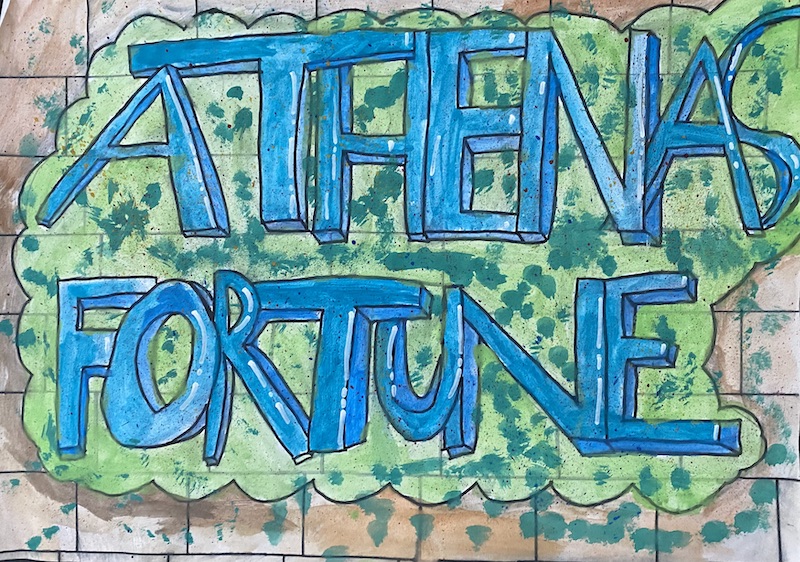 ATHENAS
FORTUNE